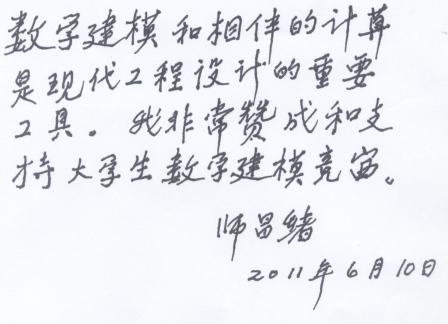 数学建模和相伴的计算
是现代工程设计的重要
工具。我非常赞成和支
持大学生数学建模竞赛。
师昌绪
2011年6月10日